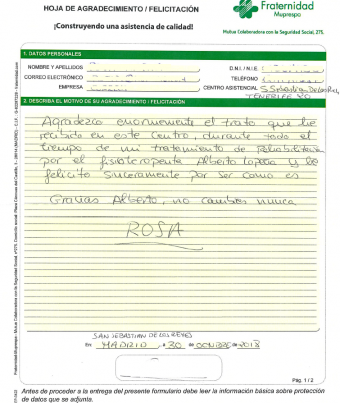 HOJA DE AGRADECIMIENTO / FELICITACIÓN
¡Construyendo una asistencia de calidad!
Fraternidad
Muprespa
Mutua Colaboradora con la Seguridad Social, 275.
1. DATOS PERSONALES
NOMBRE Y APELLIDOS
D.N.I. / N.I.E.
CORREO ELECTRÓNICO
TELÉFONO
EMPRESA
CENTRO ASISTENCIAL S.Sebastián
TENERIFE
2. DESCRIBA EL MOTIVO DE SU AGRADECIMIENTO / FELICITACIÓN
Agradezco enormemente el trato que he
recibido en este Centro, durante todo el
tiempo de mi tratamiento de Rehabilitación
por el fisioterapeuta Alberto y le
felicito sinceramente por ser como es
Gracias Alberto, no cambies nunca
ROSA
SAN SEBASTIAN DE LOS REYES
En MADRID, a 30 de OCTUBRE de 2018
Pág. 1 / 2
Antes de proceder a la entrega del presente formulario debe leer la información básica sobre protección
de datos que se adjunta.